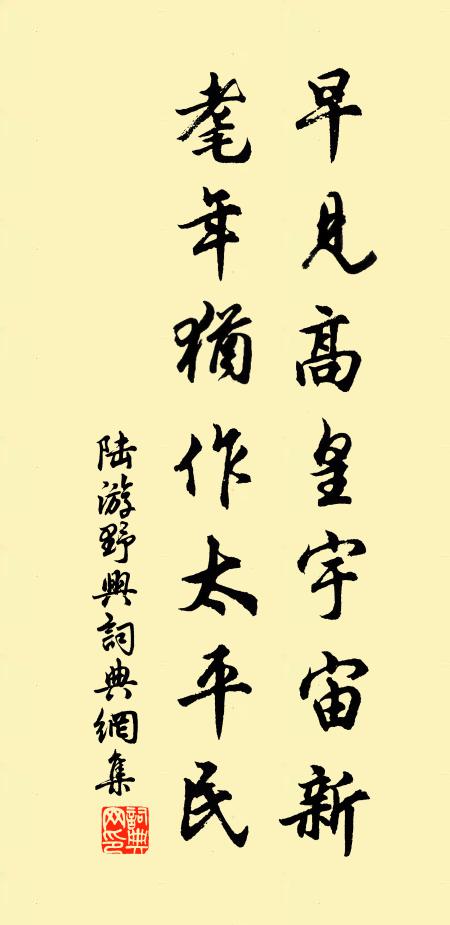 早見高皇宇宙新
耄年猶作太平民
陸游野興詞典網集
詞典网印